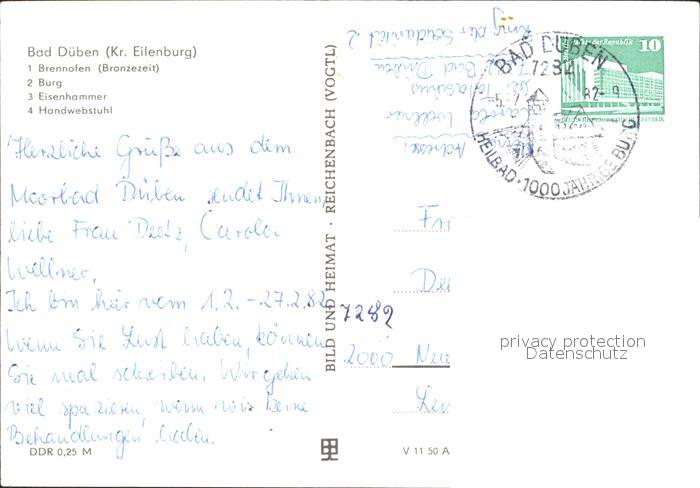 Bad Düben (Kr. Eilenburg)
1 Brennofen (Bronzezeit)
2 Burg
3 Eisenhammer
4 Handwebstuhl
Herzliche Grüße aus dem
Moorbad Düben sendet Ihnen,
liebe Frau Deetz, Carola
Wellner.
Ich bin hier vom 1.2. – 27.2.82
Wenn Sie Lust haben, können
Sie mal schreiben. Wir gehen
viel spazieren, wenn wir keine
Behandlungen haben.
DDR 0,25 M
BILD UND HEIMAT · REICHENBACH (VOGTL)
V 11 50 A
Adresse:
Carola Wellner
Bad Düben
Ring der Solidarität 2
BAD DÜBEN
7282
82-9
HEILBAD · 1000 JÄHR
BURG
der Republik
10
7282
2000
privacy protection
Datenschutz